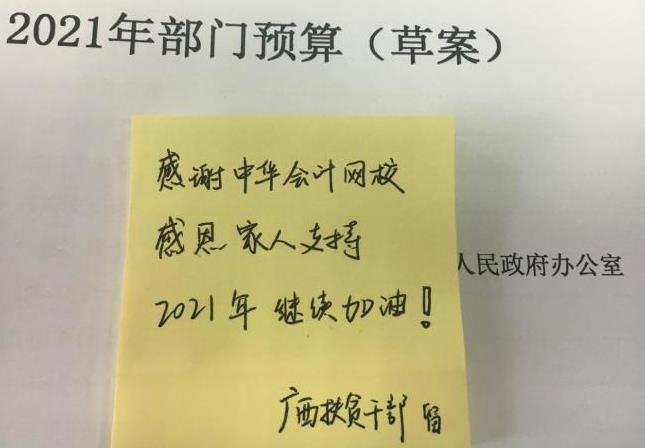 2021年部门预算（草案）
感谢中华会计网校
感恩家人支持
人民政府办公室
2021年 继续加油！
广西扶贫干部 留